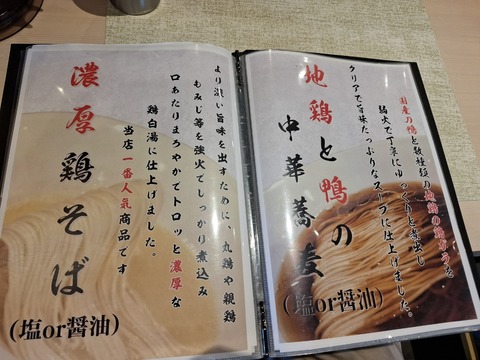 国産の鴨と数種類の地鶏の鶏ガラを
弱火で丁寧にゆっくりと煮出し
クリアで旨味たっぷりなスープに仕上げました。
地鶏と鴨の
中華蕎麦
(塩or醤油)
より深い旨味を出すために、丸鶏や親鶏
もみじ等を強火でしっかり煮込み
口あたりまろやかでトロッと濃厚な
鶏白湯に仕上げました。
当店一番人気商品です
濃厚鶏そば
(塩or醤油)